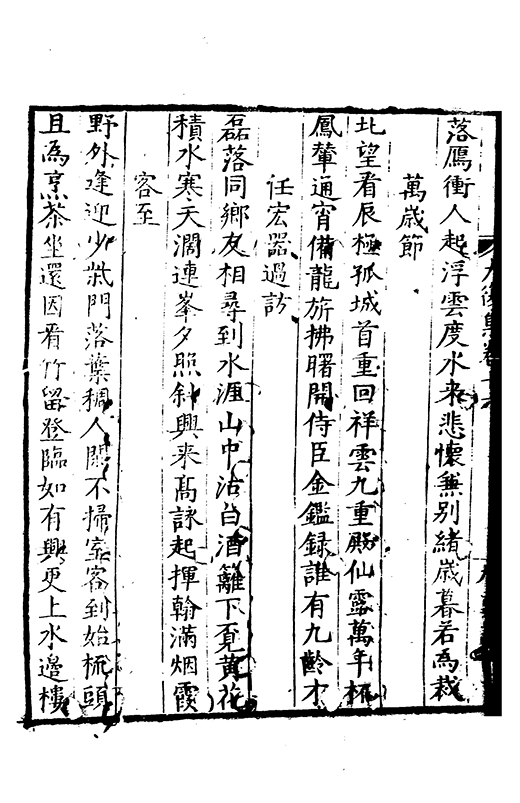 落鴈衝人起浮雲度水来悲懷無别緒歳暮若為裁
萬歳節
北望看辰極孤城首重回祥雲九重殿仙露萬年杯
鳳輦通宵備龍旂拂曙開侍臣金鑑録誰有九齡才
任宏器過訪
磊落同鄉友相尋到水涯山中沽白酒籬下覓黄花
積水寒天濶連峯夕照斜興来髙詠起揮翰滿烟霞
客至
野外逢迎少柴門落葉稠人閒不掃室客到始梳頭
且為烹茶坐還因看竹留登臨如有興更上水邊樓